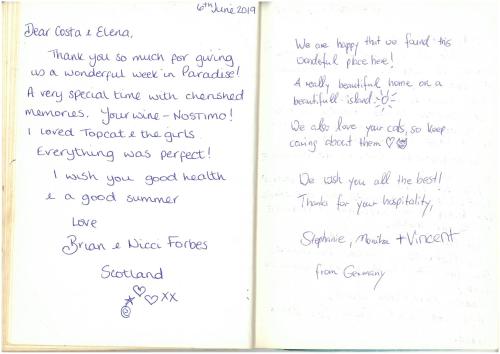 6th June 2019
Dear Costa & Elena,
Thank you so much for giving
us a wonderful week in Paradise!
A very special time with cherished
memories. Your wine - NOSTIMO!
I loved Topcat & the girls
Everything was perfect!
I wish you good health
& a good summer
Love
Brian & Nicci Forbes
Scotland
xx
We are happy that we found this
wonderful place here!
A really beautiful home on a
beautifull island
We also love your cats, so keep
caring about them
We wish you all the best!
Thanks for your hospitality,
Stephanie, + Vincent
from Germany